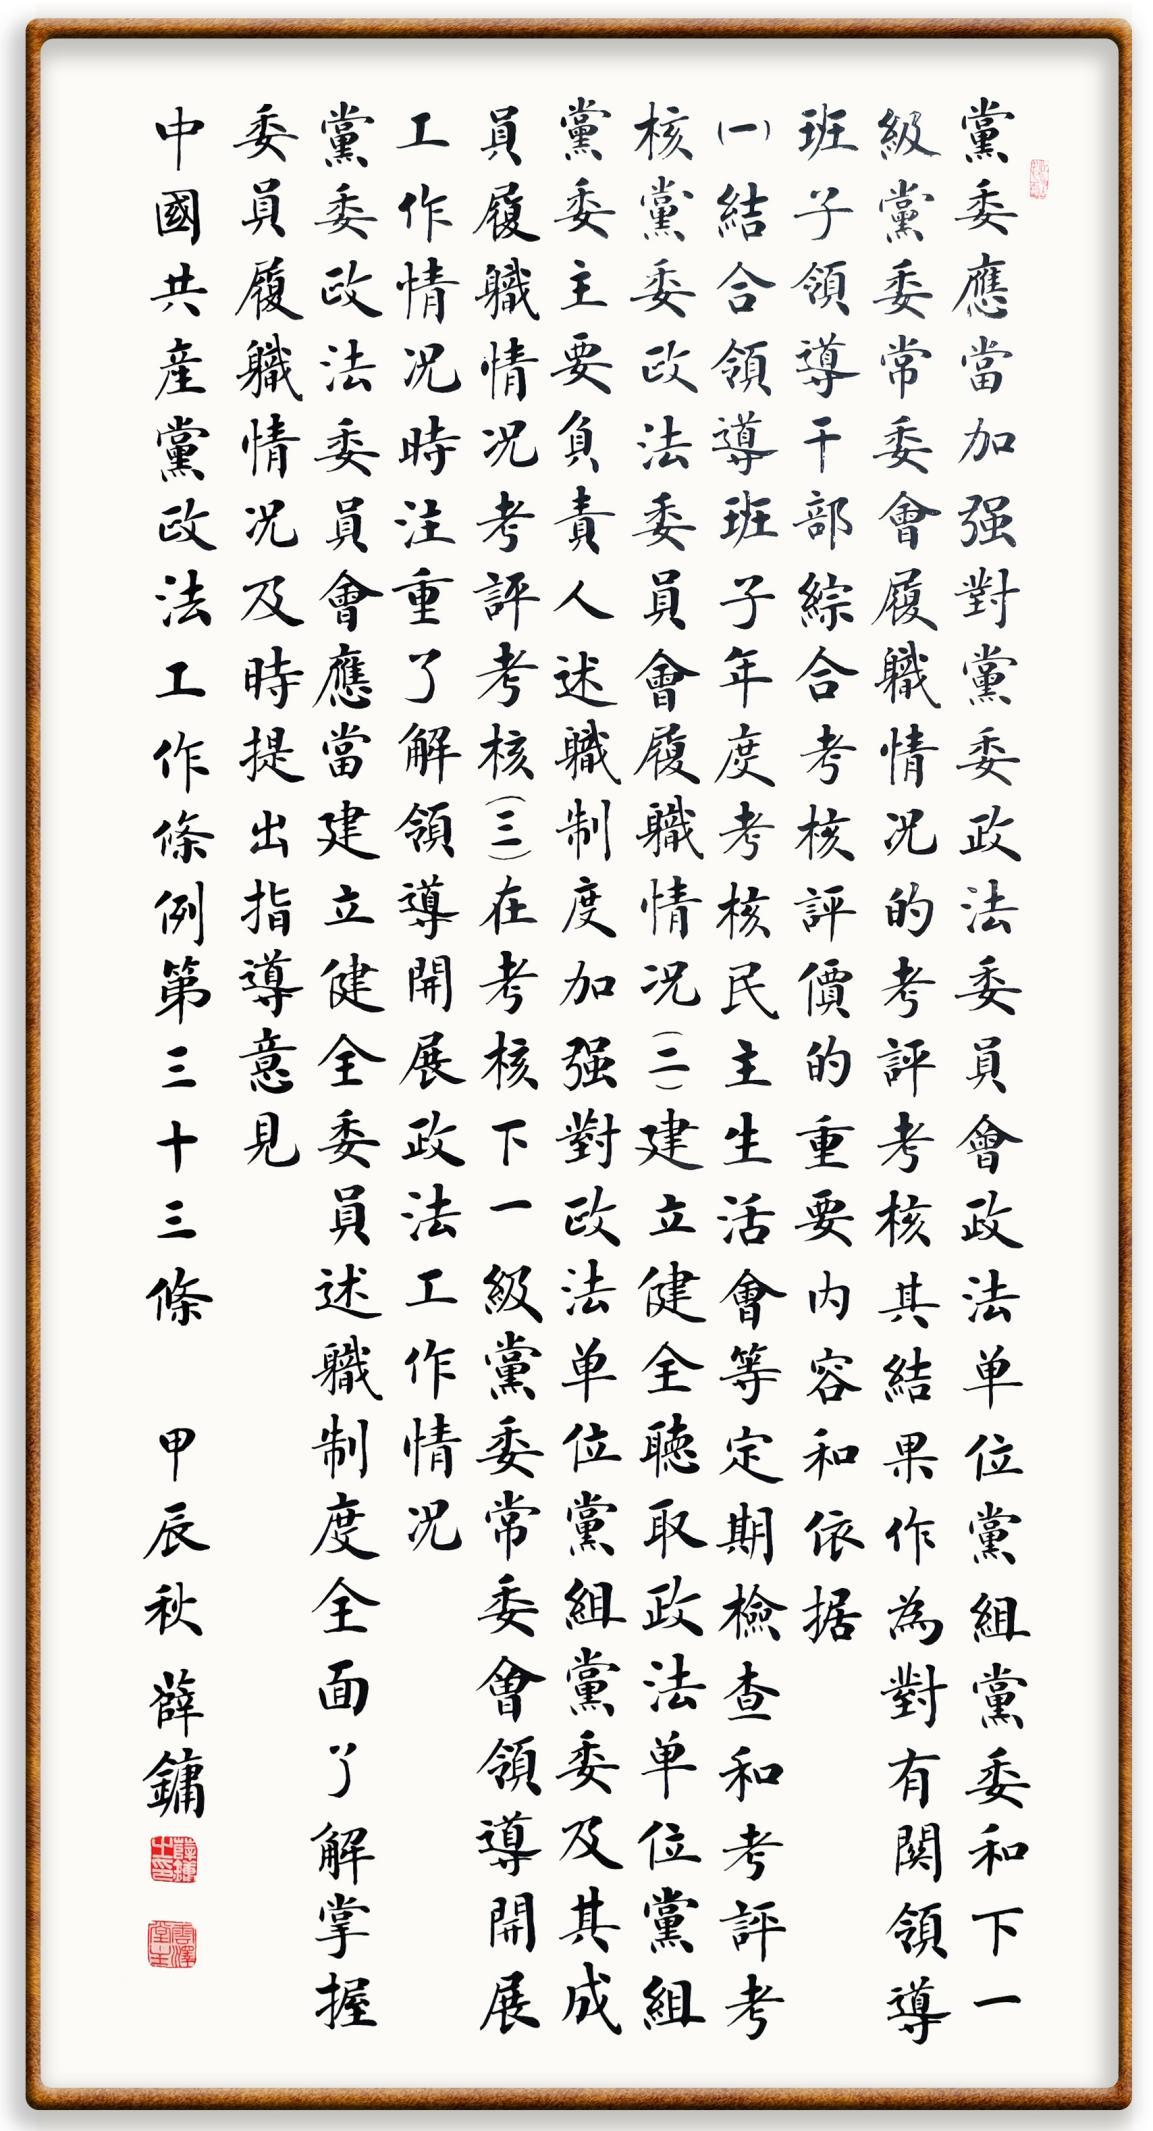 黨委應當加强對黨委政法委員會政法单位黨組黨委和下一
級黨委常委會履職情况的考評考核其結果作為對有関領導
班子領導干部綜合考核評價的重要内容和依据
(一)結合領導班子年度考核民主生活會等定期檢查和考評考
核黨委政法委員會履職情况(二)建立健全聽取政法单位黨組
黨委主要負責人述職制度加强對政法单位黨組黨委及其成
員履職情况考評考核(三)在考核下一級黨委常委會領導開展
工作情况時注重了解領導開展政法工作情况
黨委政法委員會應當建立健全委員述職制度全面了解掌握
委員履職情况及時提出指導意見
中國共産黨政法工作條例第三十三條 甲辰秋 薛鏞
薛鏞之印
雲澤堂主